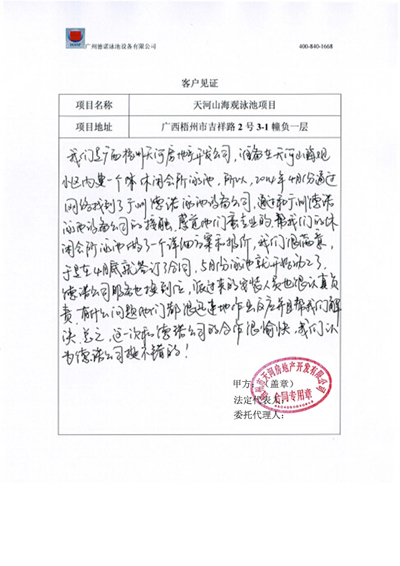 广州德诺泳池设备有限公司 400-840-1668
客户见证
项目名称 天河山海观泳池项目
项目地址 广西梧州市吉祥路 2 号 3-1 幢负一层
我们是广西梧州天河房地产开发公司,准备在天河山海观
小区内建一个休闲会所泳池。所以,2014年4月份通过
网络找到了广州德诺泳池设备公司,通过和广州德诺
泳池设备公司的接触,感觉他们蛮专业的,帮我们的休
闲会所泳池做了一个详细方案和报价,我们很满意,
于是在4月底就签订了合同,5月份泳池就开始动工了。
德诺公司服务也挺到位,派过来的安装人员也很认真负
责,有什么问题他们都很迅速地作出反应并且帮我们解
决。总之,这一次和德诺公司的合作很愉快,我们认
为德诺公司挺不错的!
甲方:(盖章)
法定代表人:
委托代理人:
天河房地产开发有限公司
合同专用章